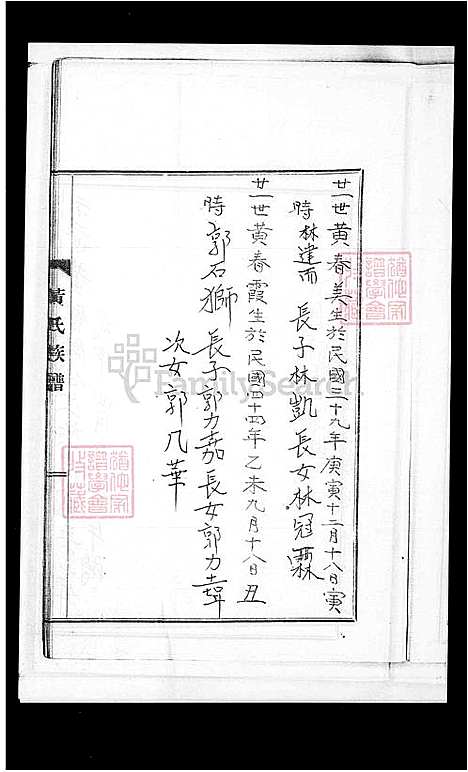 廿一世黃春美生於民國三十九年庚寅十二月十八日寅
時 林建而 長子林凱 長女林冠霖
廿一世黃春霞生於民國四十四年乙未九月十八日 丑
時 郭石獅 長子郭力嘉 長女郭力
次女郭凡華
黃氏族譜
FamilySearch